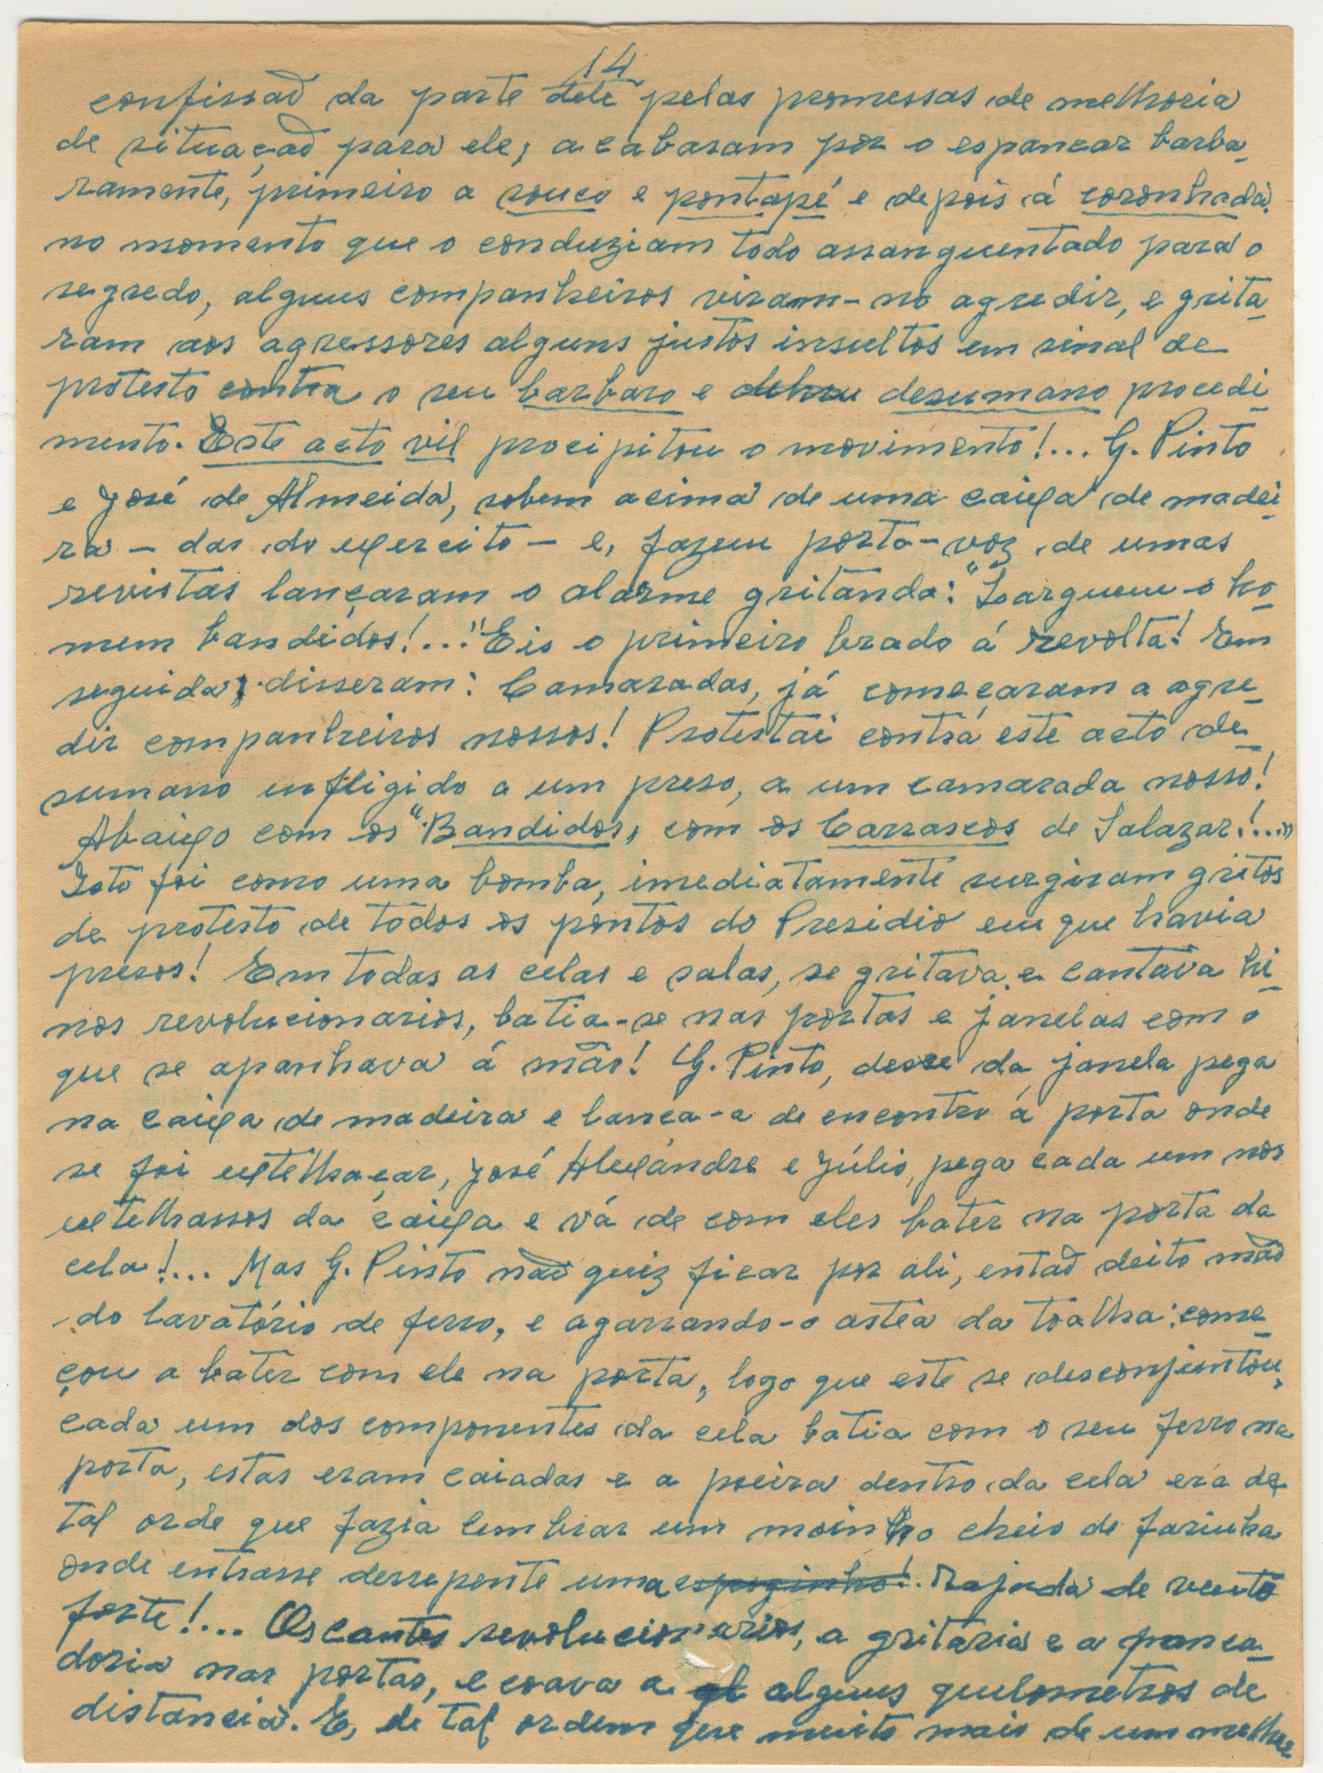 14
confissaõ da parte dele pelas promessas de melhoria
de situaçaõ para ele, acabaram por o espancar barba-
ramente, primeiro a souco e pontapé e depois á coronhada.
no momento que o conduziam todo assanguentado para o
segredo, alguns companheiros viram-no agredir, e grita-
ram aos agressores alguns justos insultos em sinal de
protesto contra o seu barbaro e desumano procedi-
mento. Este acto vil procipitou o movimento!... G. Pinto
e José de Almeida, sobem acima de uma caixa de madei-
ra - das do exercito - e, fazem porta-voz de umas
revistas lançaram o alarme gritando: "Larguem o ho-
mem bandidos!..." Eis o primeiro brado á revolta! Em
seguida, disseram: Camaradas, já começaram a agre-
dir companheiros nossos! Protestai contra este acto de-
sumano infligido a um preso, a um camarada nosso!
Abaixo com os "Bandidos, com os Carrascos de Salazar!..."
Isto foi como uma bomba, imediatamente surgiram gritos
de protesto de tôdos os pontos do Presidio em que havia
presos! Em todas as celas e salas, se gritava e cantava hi-
nos revolucionarios, batia-se nas portas e janelas com o
que se apanhava á mão! G. Pinto, desse da janela pega
na caixa de madeira e lanca-a de encontro á porta onde
se foi extelhaçar, José Alexándre e Júlio, pega cada um nos
extelhassos da caixa e vá de com eles bater na porta da
cela!... Mas G. Pinto naõ quiz ficar por ali, entaõ deito maõ
do lavatório de ferro, e agarrando-o astea da toalha; come-
çou a bater com ele na porta, logo que este se desconjuntou,
cada um dos componentes da cela batia com o seu ferro na
porta, estas eram caiadas e a poeira dentro da cela era de
tal orde que fazia lembrar um moinho cheio de farinha
onde entrasse derrepente uma espoginho!. Rajada de vento
forte!... Os cantos revolucionarios, a gritaria e a panca-
daria nas portas, ecoava a alguns quilometros de
distancia. E, de tal ordem que muito mais de um melher